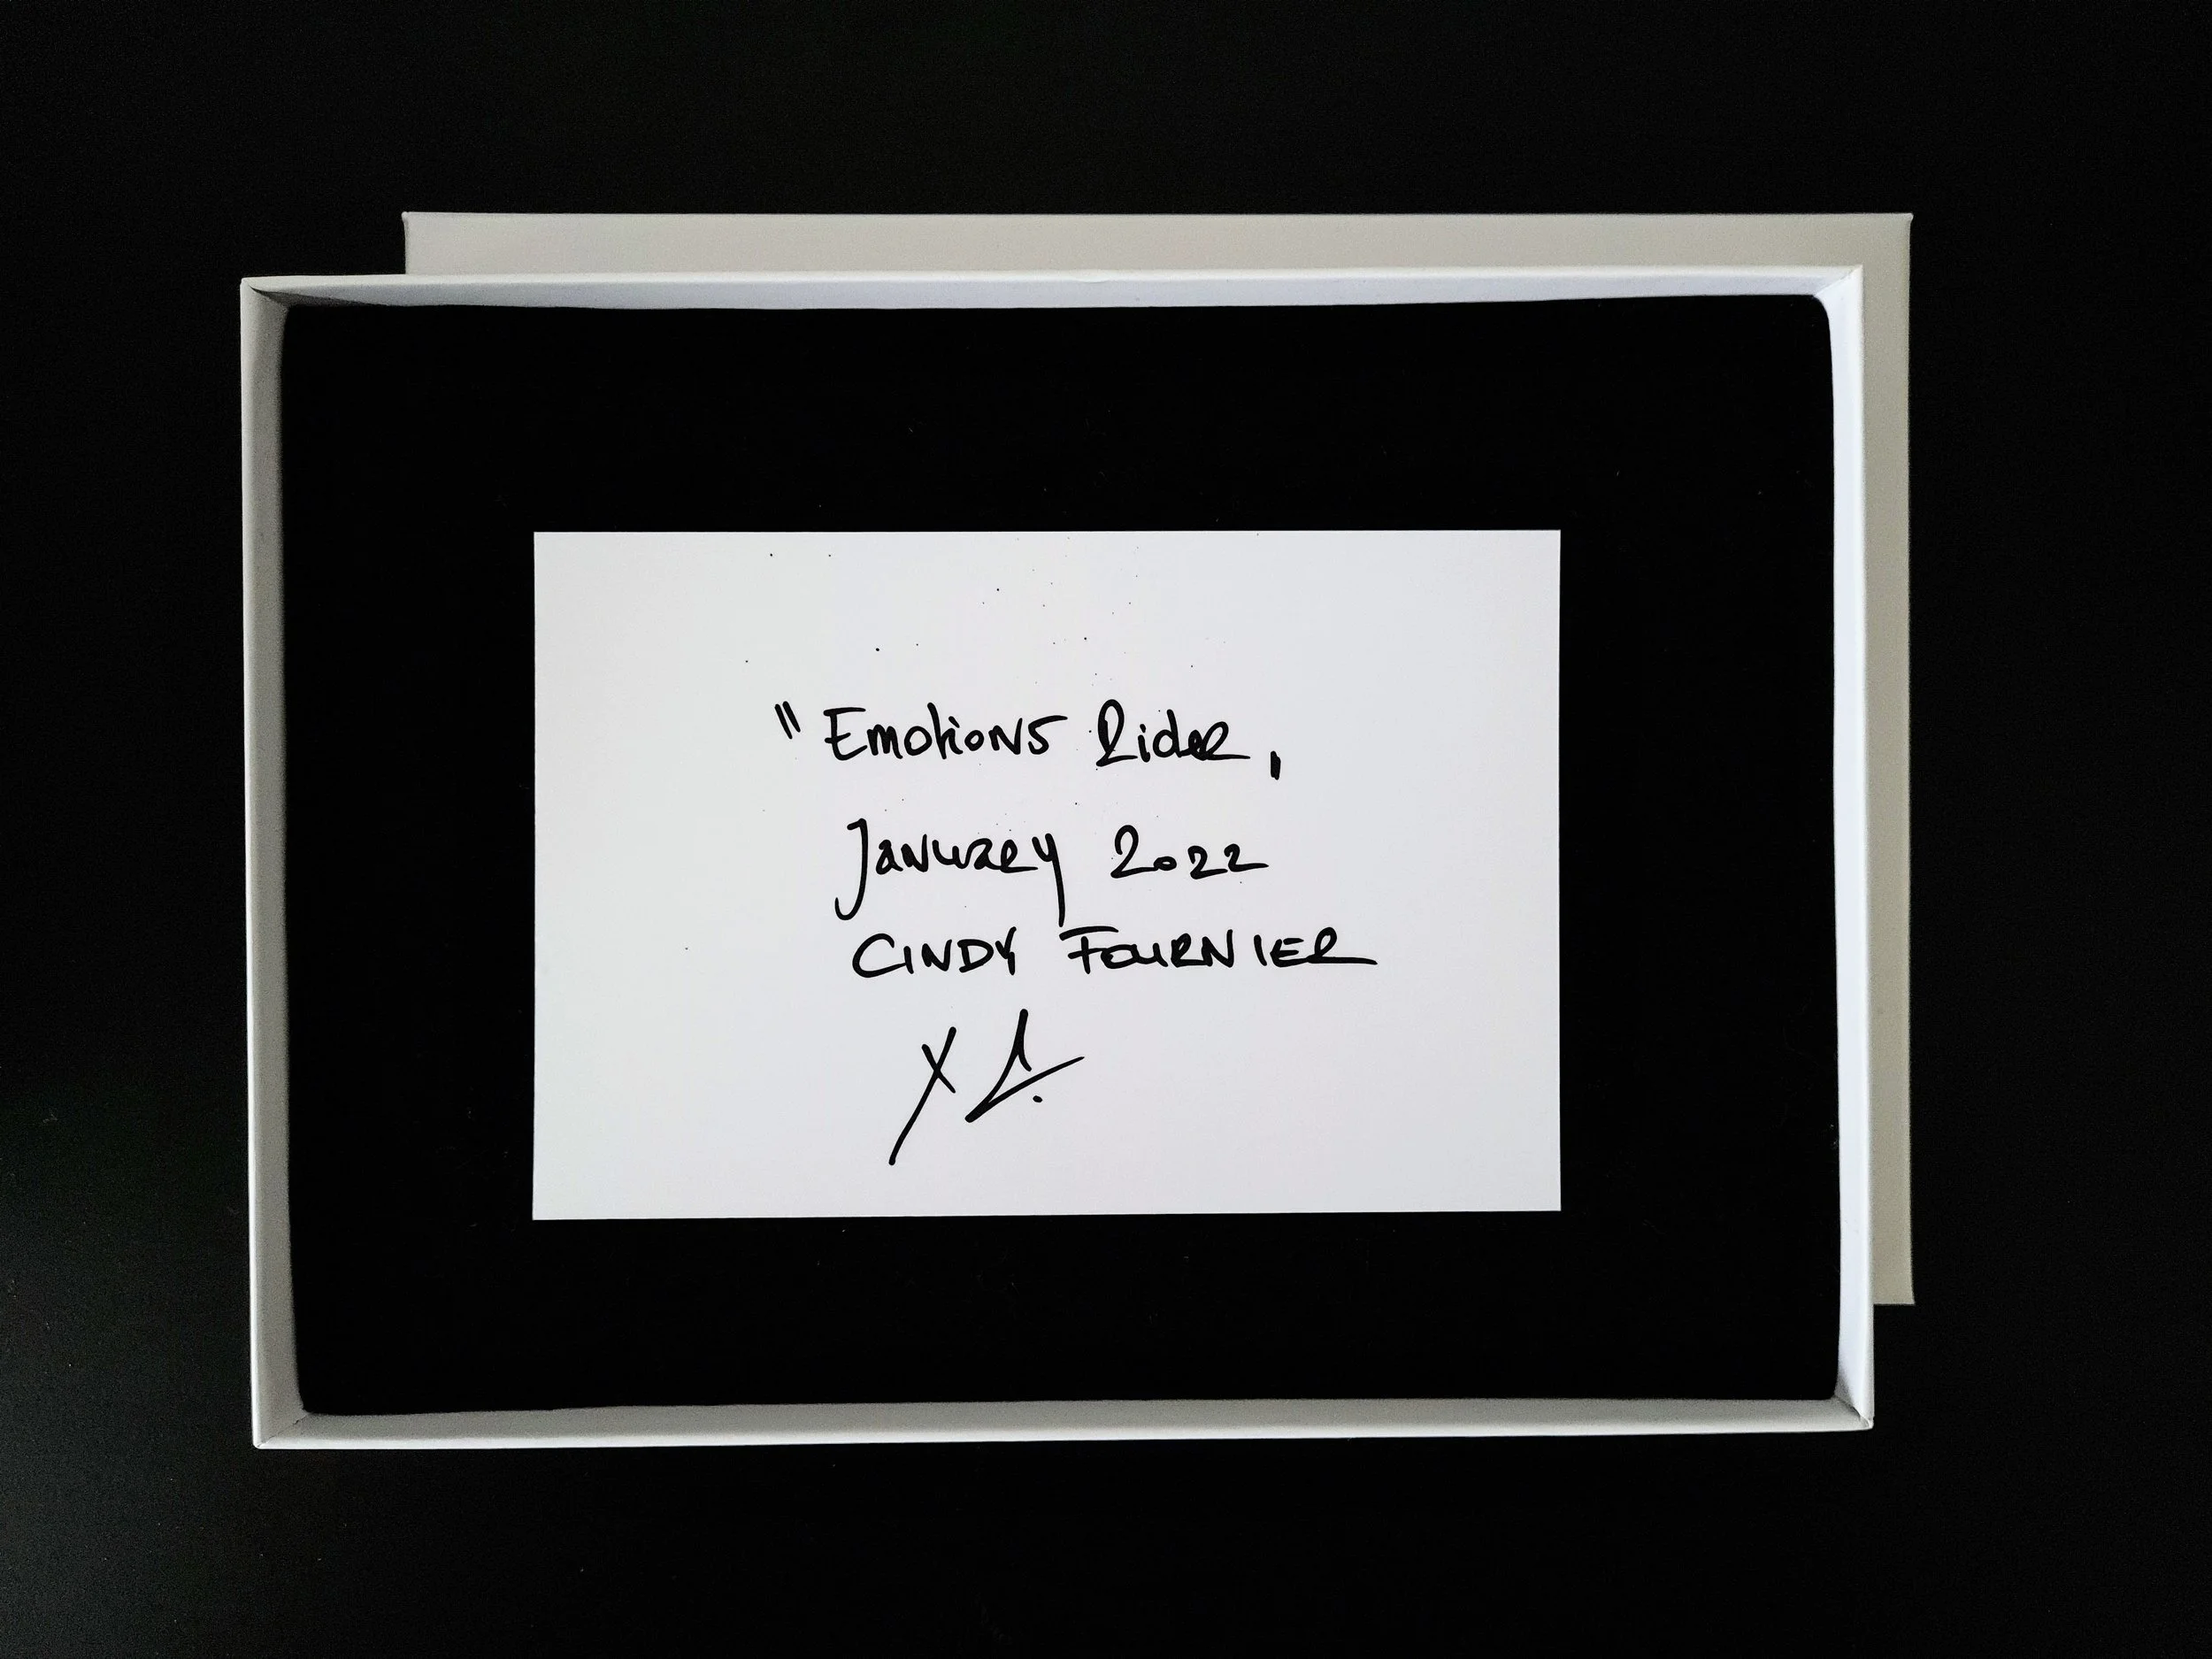 " Emotions Rider "
January 2022
CINDY FOURNIER